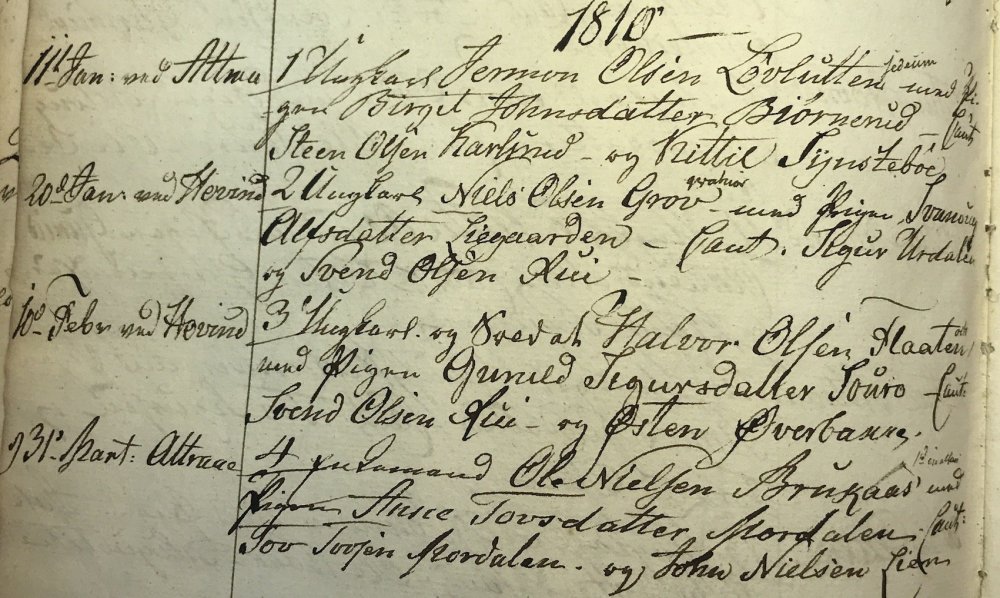 1810
11te Jan: ved Attraa 1 Ungkarl Jermon Olsen Løvlutten med Pi-
gen Birgit Johnsdatter Biørnerud - Caut
Steen Olsen Karlsrud - og Kittil Synstebøe
20de Jan: ved Hovind 2 Ungkarl Niels Olsen Grov - med Pigen Svanoug
Alfsdatter Liegaarden - Caut. Sigur Urdalen
og Svend Olsen Rui -
10de Febr ved Hovind 3 Ungkarl og Soldat Halvor Olsen Flaaten
med Pigen Gunild Sigursdatter Souro - Caut:
Svend Olsen Rui - og Østen Øverbakke.
31te Mart: Attraae 4 Enkemand Ole Nielsen Brukaas med
Pigen Anne Tovsdatter Mordalen. Caut:
Tov Tovsen Mordalen. og John Nielsen Lien